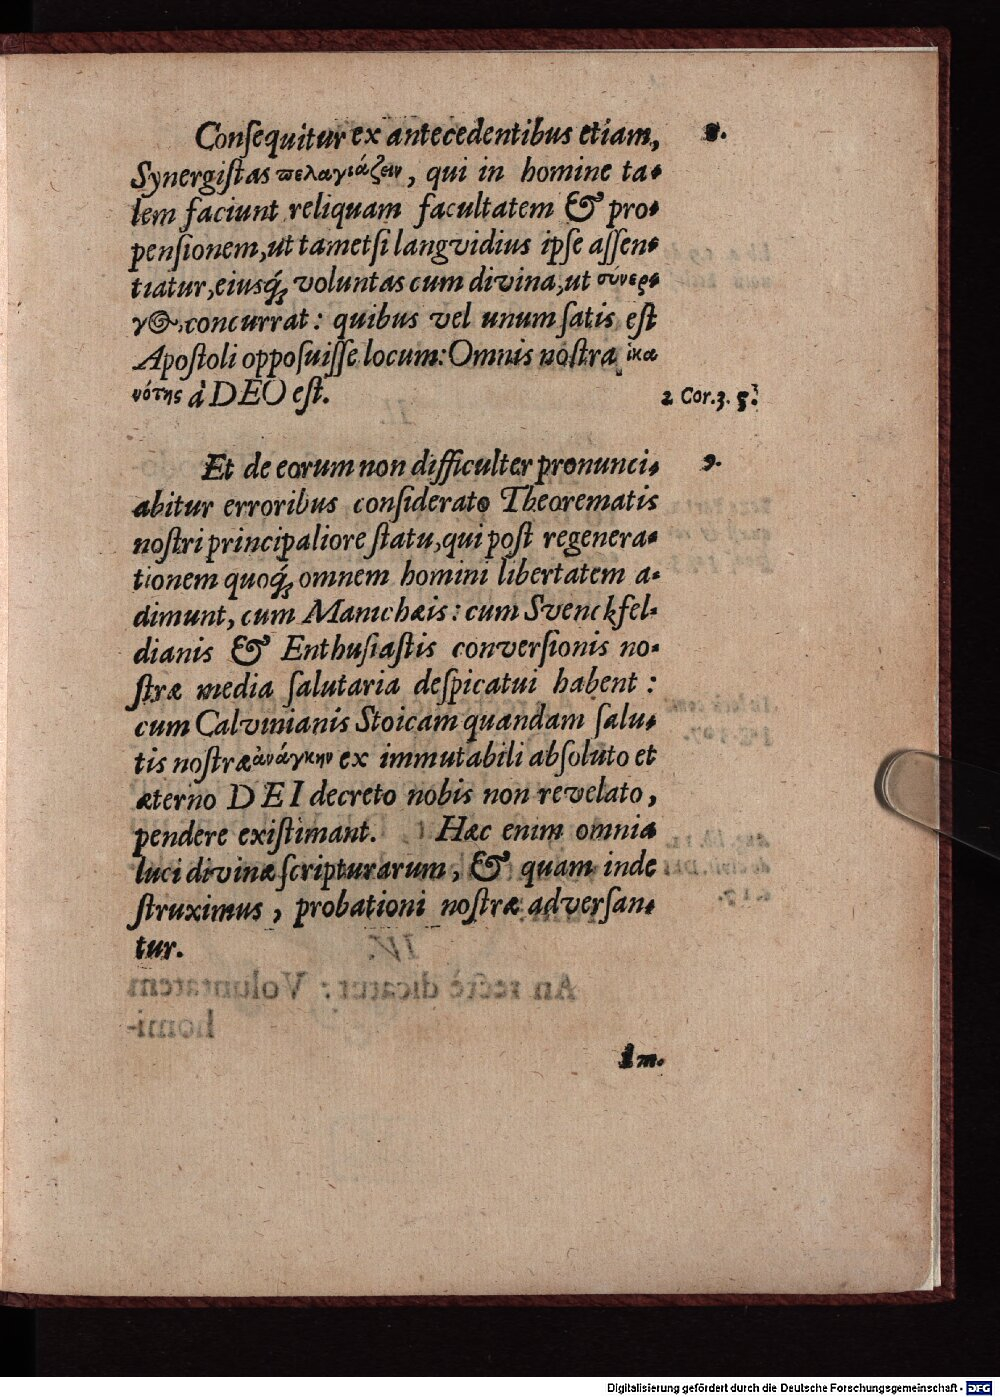 Conſequitur ex antecedentibus etiam, 8.
Synergiſtas πελαγιάζειν, qui in homine ta-
lem faciunt reliquam facultatem & pro-
penſionem, ut tametſi langvidius ipſe aſſen-
tiatur, ejusq́; voluntas cum divina, ut σύνερ-
γ@, concurrat: quibus vel unum ſatis eſt
Apoſtoli oppoſuiſſe locum: Omnis noſtra ἱκα
νότης à DEO eſt. 2 Cor. 3. 5.
Et de eorum non difficulter pronunci- 9.
abitur erroribus conſiderato Theorematis
noſtri principaliore ſtatu, qui poſt regenera-
tionem quoq́; omnem homini libertatem a-
dimunt, cum Manichæis: cum Svenckfel-
dianis & Enthuſiaſtis converſionis no-
ſtræ media ſalutaria deſpicatui habent:
cum Calvinianis Stoicam quandam ſalu-
tis noſtræ ἀνάγκην ex immutabili abſoluto et
æterno DEI decreto nobis non revelato,
pendere exiſtimant. Hæc enim omnia
luci divinæ ſcripturarum, & quam inde
ſtruximus, probationi noſtræ adverſan-
tur.
Im-
Digitalisierung gefördert durch die Deutsche Forschungsgemeinschaft - DFG